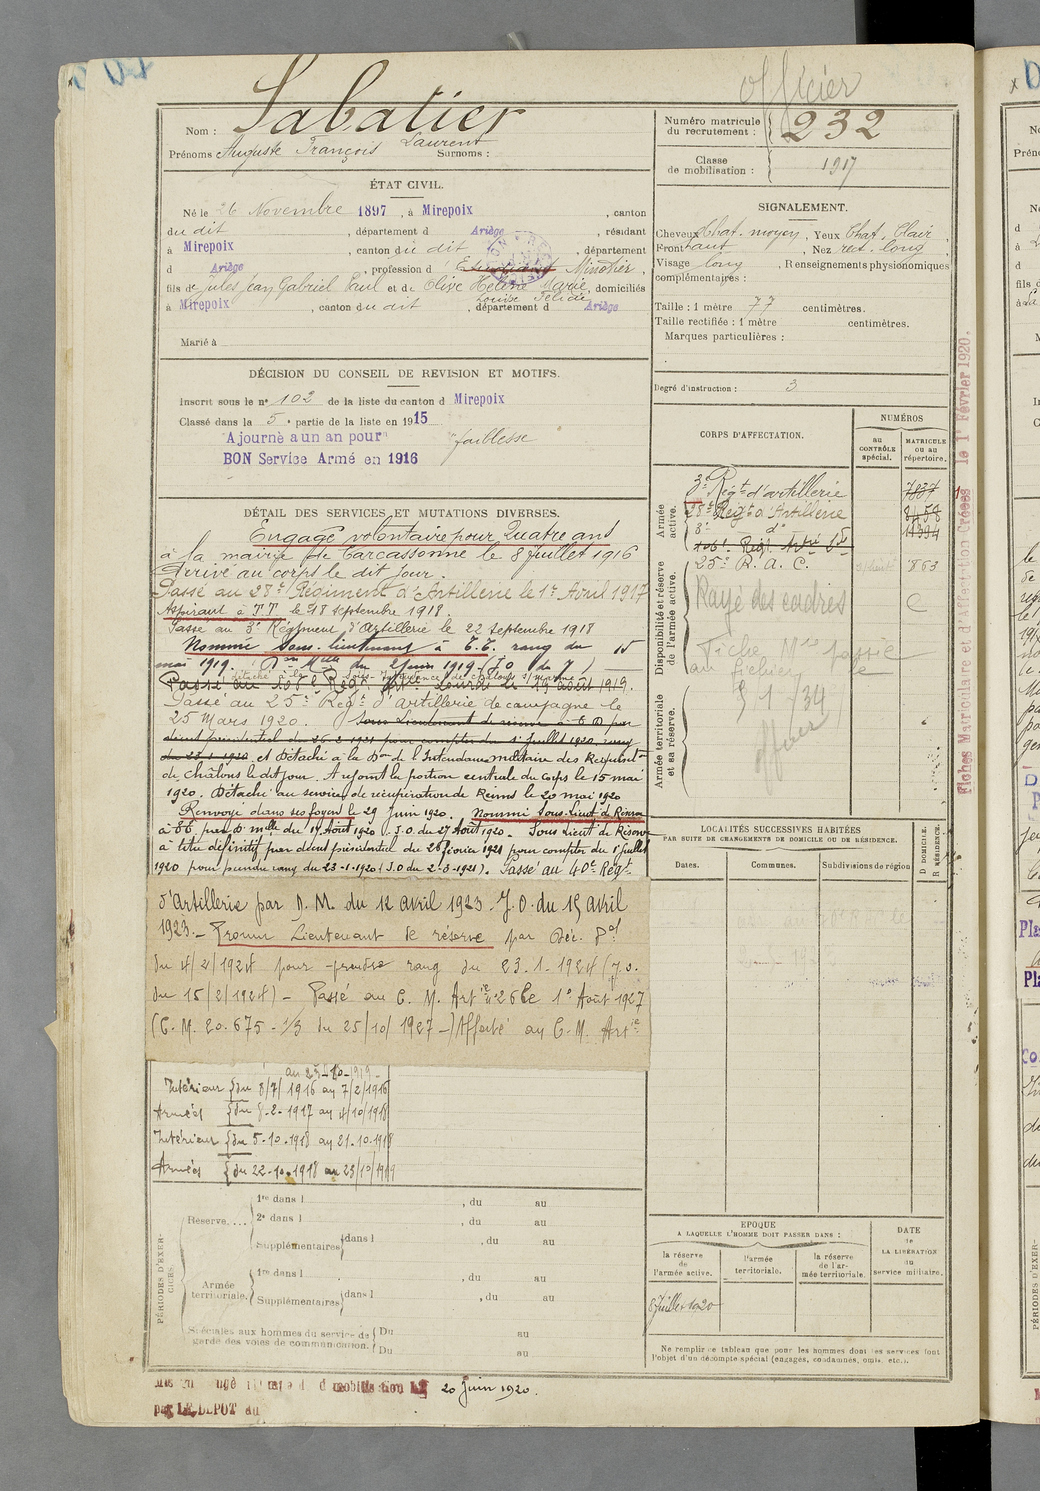 officier
Nom : Sabatier
Prénoms Auguste François Laurent Surnoms :
Numéro matricule du recrutement : 232
Classe de mobilisation : 1917
ÉTAT CIVIL.
Né le 26 Novembre 1897, à Mirepoix, canton
du dit, département d Ariège, résidant
à Mirepoix, canton du dit, département
d Ariège, profession d Etudiant Minotier,
fils de Jules Jean Gabriel Paul et de Elise Hélène Marie, domiciliés
Louise Félicie
à Mirepoix, canton du dit, département d Ariège
Marié à
SIGNALEMENT.
Cheveux Chat. moyen, Yeux Chat. Clair,
Front haut, Nez rect. long,
Visage long, Renseignements physionomiques
complémentaires :
Taille : 1 mètre 77 centimètres.
Taille rectifiée : 1 mètre centimètres.
Marques particulières :
Degré d'instruction : 3
DÉCISION DU CONSEIL DE REVISION ET MOTIFS.
Inscrit sous le n° 102 de la liste du canton d Mirepoix
Classé dans la 5e partie de la liste en 1915
Ajourné a un an pour "faiblesse"
BON Service Armé en 1916
CORPS D'AFFECTATION.
NUMÉROS
au CONTRÔLE spécial.
MATRICULE ou au répertoire.
Armée active.
3e Régt d'artillerie
28e Régt d'Artillerie
3e do
25e R. A. C. 863
Disponibilité et réserve de l'armée active.
Rayé des cadres
Fiche Mle passée
au fichier le
Armée territoriale et sa réserve.
officier
Fiches Matriculaire et d'Affectation Créées le 1er Février 1920.
DÉTAIL DES SERVICES ET MUTATIONS DIVERSES.
Engagé volontaire pour Quatre ans
à la mairie de Carcassonne le 8 Juillet 1916
Arrivé au corps le dit jour.
Passé au 28e Régiment d'Artillerie le 1er Avril 1917
Aspirant à T.T. le 18 septembre 1918.
Passé au 3e Régiment d'artillerie le 22 septembre 1918
Nommé Sous-lieutenant à T.T. rang du 15
mai 1919. Don Mlle du 2 juin 1919 (J.O. du 7)
Passé au 106e Régt Artie Lourde le 19 août 1919.
Passé au 25e Régt d'artillerie de campagne le
25 Mars 1920. Sous Lieutenant de réserve à T.D par
décret présidentiel du 26-2-1921 pour compter du 1er Juillet 1920, rang
du 23-1-1920 et Détaché à la Don de l'Intendance militaire des Requisit.
de châlons le dit jour. A rejoint la portion centrale du Corps le 15 mai
1920. Détaché au service de récupération de Reims le 20 mai 1920
Renvoyé dans ses foyers le 29 Juin 1920. Nommé Sous-Lieut de Réserve
à TT par D. mlle du 14 Août 1920 J.O. du 27 Août 1920. Sous Lieut de Réserve
à titre définitif par décret présidentiel du 26 février 1921 pour compter du 1er Juillet
1920 pour prendre rang du 23-1-1920 (J.O du 2-3-1921). Passé au 40e Régt
d'Artillerie par D. M. du 12 avril 1923. J.O. du 15 avril
1923. Promu Lieutenant de réserve par Déc. Pel
du 4/2/1924 pour prendre rang du 23.1.1924 (J.O.
du 15/2/1924) – Passé au C. M. Artie n° 26 le 1er Août 1927
(C.M. 20.675-1/3 du 25/10/1927 –) Affecté au C. M. Artie
Intérieur { du 8/7/1916 au 7/2/1916
Armées { du 8-2-1917 au 4/10/1918
Intérieur { du 5-10-1918 au 21.10.1918
Armées { du 22-10-1918 au 23/10/1919
LOCALITÉS SUCCESSIVES HABITÉES
PAR SUITE DE CHANGEMENTS DE DOMICILE OU DE RÉSIDENCE.
Dates. Communes. Subdivisions de région D DOMICILE. R RÉSIDENCE.
PÉRIODES D'EXERCICES.
Réserve....
1re dans l , du au
2e dans l , du au
Supplémentaires dans l , du au
Armée territoriale.
1re dans l , du au
Supplémentaires dans l , du au
Spéciales aux hommes du service de garde des voies de communication.
Du au
Du au
EPOQUE
A LAQUELLE L'HOMME DOIT PASSER DANS :
la réserve de l'armée active.
l'armée territoriale.
la réserve de l'armée territoriale.
DATE de LA LIBÉRATION du service militaire.
8 Juillet 1920
Ne remplir ce tableau que pour les hommes dont les services font
l'objet d'un décompte spécial (engagés, condamnés, omis, etc.).
20 Juin 1920.
par LE DEPOT du